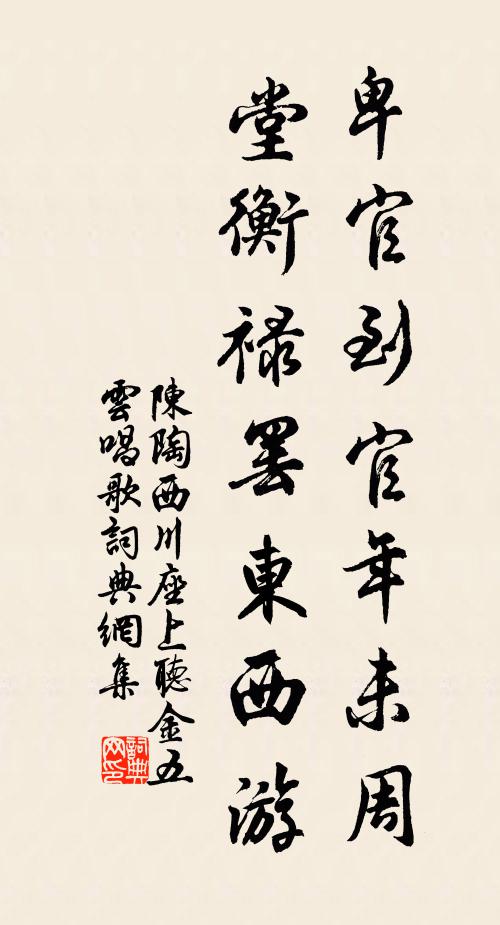 卑官到官年未周
堂衡祿罷東西游
陳陶西川座上聽金五
雲唱歌詞典網集
詞典网印